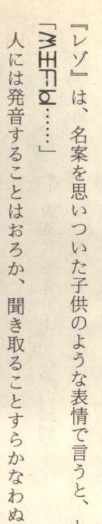 『レゾ』は、名案を思いついた子供のような表情で言うと、
「……」
人には発音することはおろか、聞き取ることすらかなわぬ